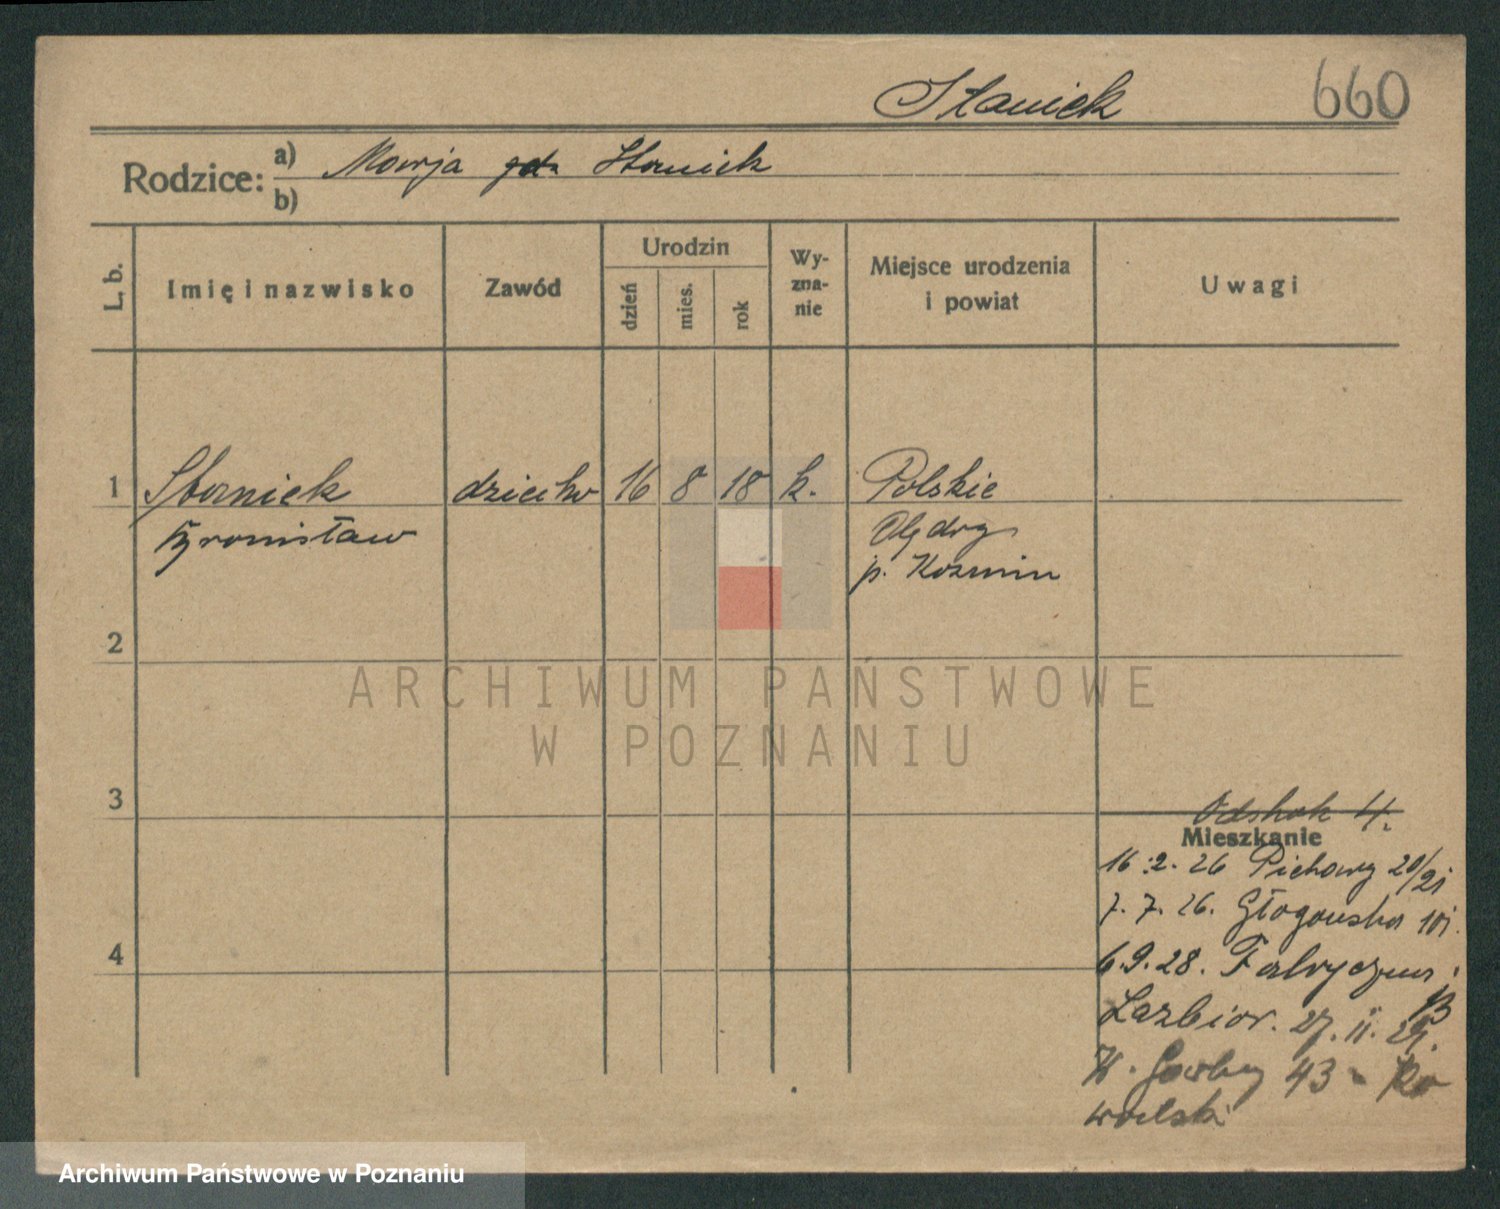 Staniek
660
Rodzice:
a) Marja Staniek
b)
L. b.
Imię i nazwisko
Zawód
Urodzin
dzień
mies.
rok
Wy-
zna-
nie
Miejsce urodzenia
i powiat
Uwagi
1 Staniek dziecko 16 8 18 k. Polskie
Bronisław
Olędry
p. Kozmin
2
ARCHIWUM PAŃSTWOWE
W POZNANIU
3
4.
Mieszkanie
16.2.26 Piekary 20/21
7.7.26. Głogowska 101.
4
6.9.28. Fabryczna
13
27.11.29.
W. Garbary 43 - Ko
walski
Archiwum Państwowe w Poznaniu